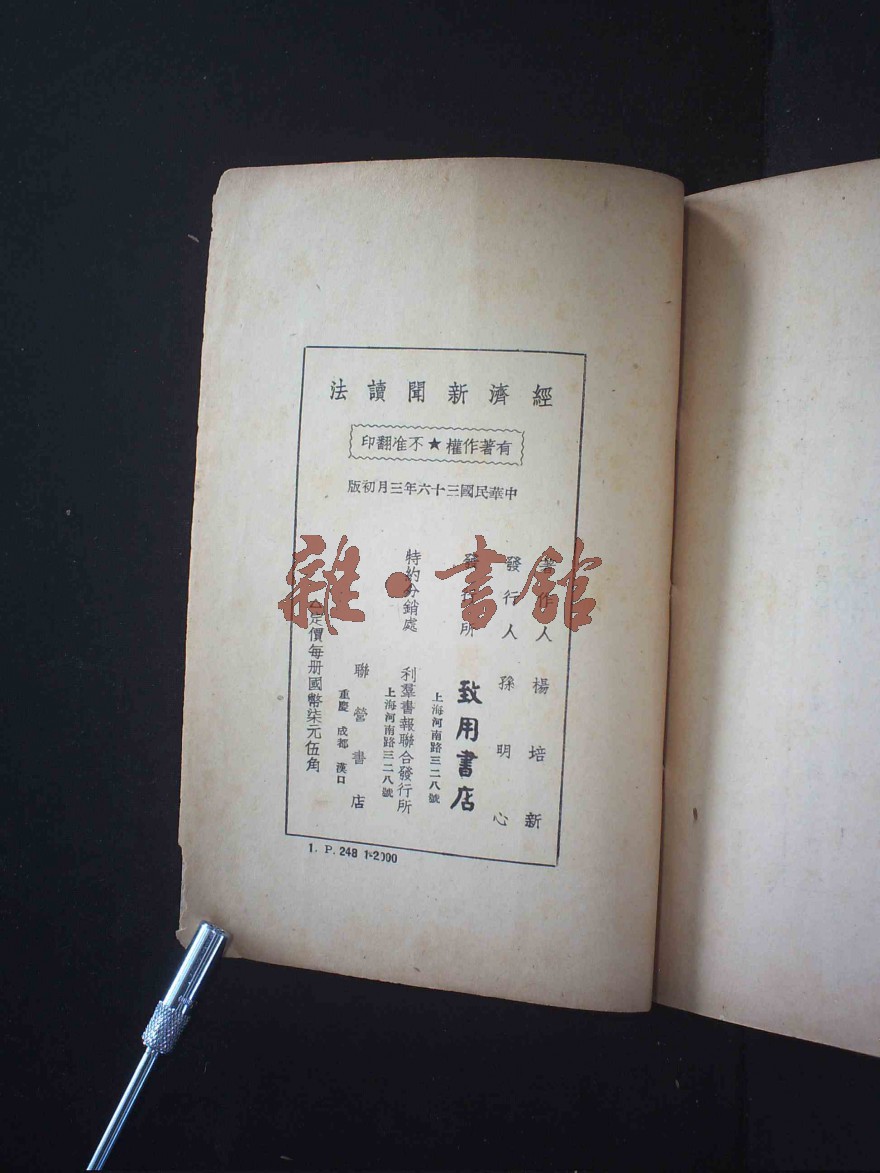 經濟新聞讀法
有著作權★不准翻印
中華民國三十六年三月初版
著作人 楊培新
發行人 孫明心
發行所 致用書店
上海河南路三二八號
特約分銷處 利羣書報聯合發行所
上海河南路三二八號
聯營書店
重慶 成都 漢口
定價每册國幣柒元伍角
1. P. 248 1-2000
雜·書館